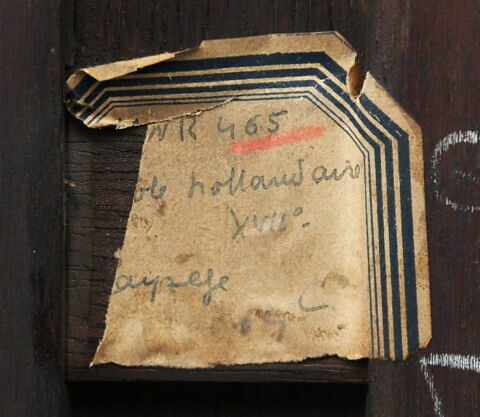 MNR 465
ole hollandaise
XVIIº
aysage